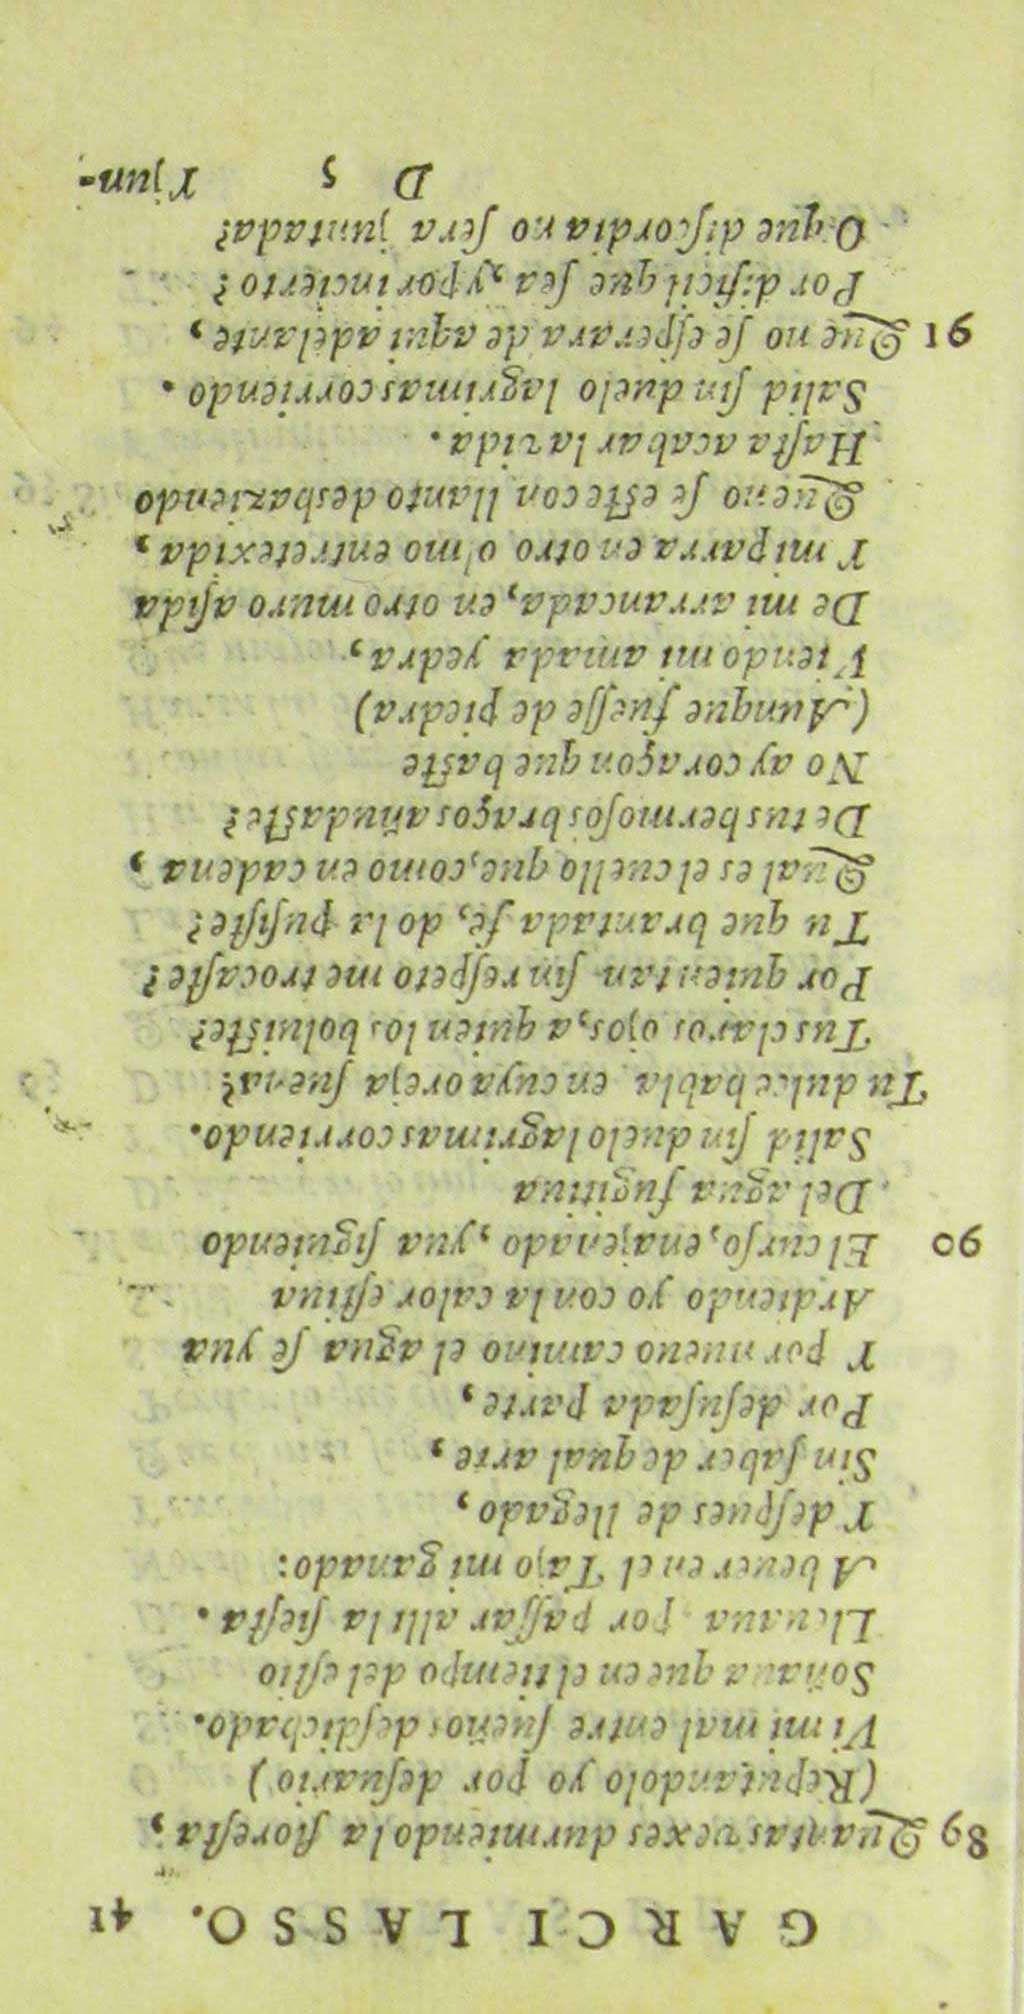 GARCI LASSO. 41
89 Quantas vexes durmiendo la floresta,
(Reputandolo yo por desuario)
Vi mi mal entre sueños desdichado.
Soñaua que en el tiempo del estio
Lleuaua por passar alli la siesta.
A beuer en el Tajo mi ganado:
Y despues de llegado,
Sin saber de qual arte,
Por desusada parte,
Y por nueuo camino el agua se yua
Ardiendo yo con la calor estiua
90 El curso, enajenado, yua siguiendo
Del agua fugitiua
Salid sin duelo lagrimas corriendo.
Tu dulce habla en cuya oreja suena?
Tus claros ojos, a quien los boluiste?
Por quien tan sin respeto me trocaste?
Tu que brantada fe, do la pusiste?
Qual es el cuello que, como en cadena,
De tus hermosos braços añudaste?
No ay coraçon que baste
(Aunque fuesse de piedra)
Viendo mi amada yedra,
De mi arrancada, en otro muro asida
Y mi parra en otro olmo entretexida,
Que no se este con llanto deshaziendo
Hasta acabar la vida.
Salid sin duelo lagrimas corriendo.
91 Que no se esperara de aqui adelante,
Por dificil que sea, y por incierto?
O que discordia no sera juntada?
D 5 Y jun-